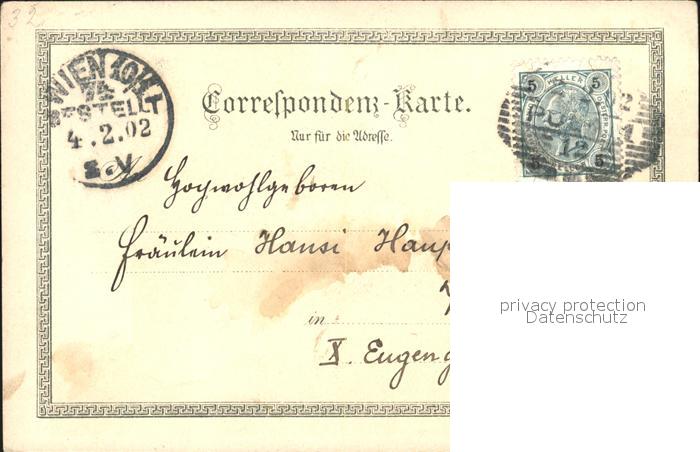 32
WIEN 10/1
BESTELLT
4.2.02
Correspondenz-Karte.
Nur für die Adresse.
5 HELLER 5
5 5
12
Hochwohlgeboren
Fräulein Hansi Haup
in
X. Eugeng
privacy protection
Datenschutz